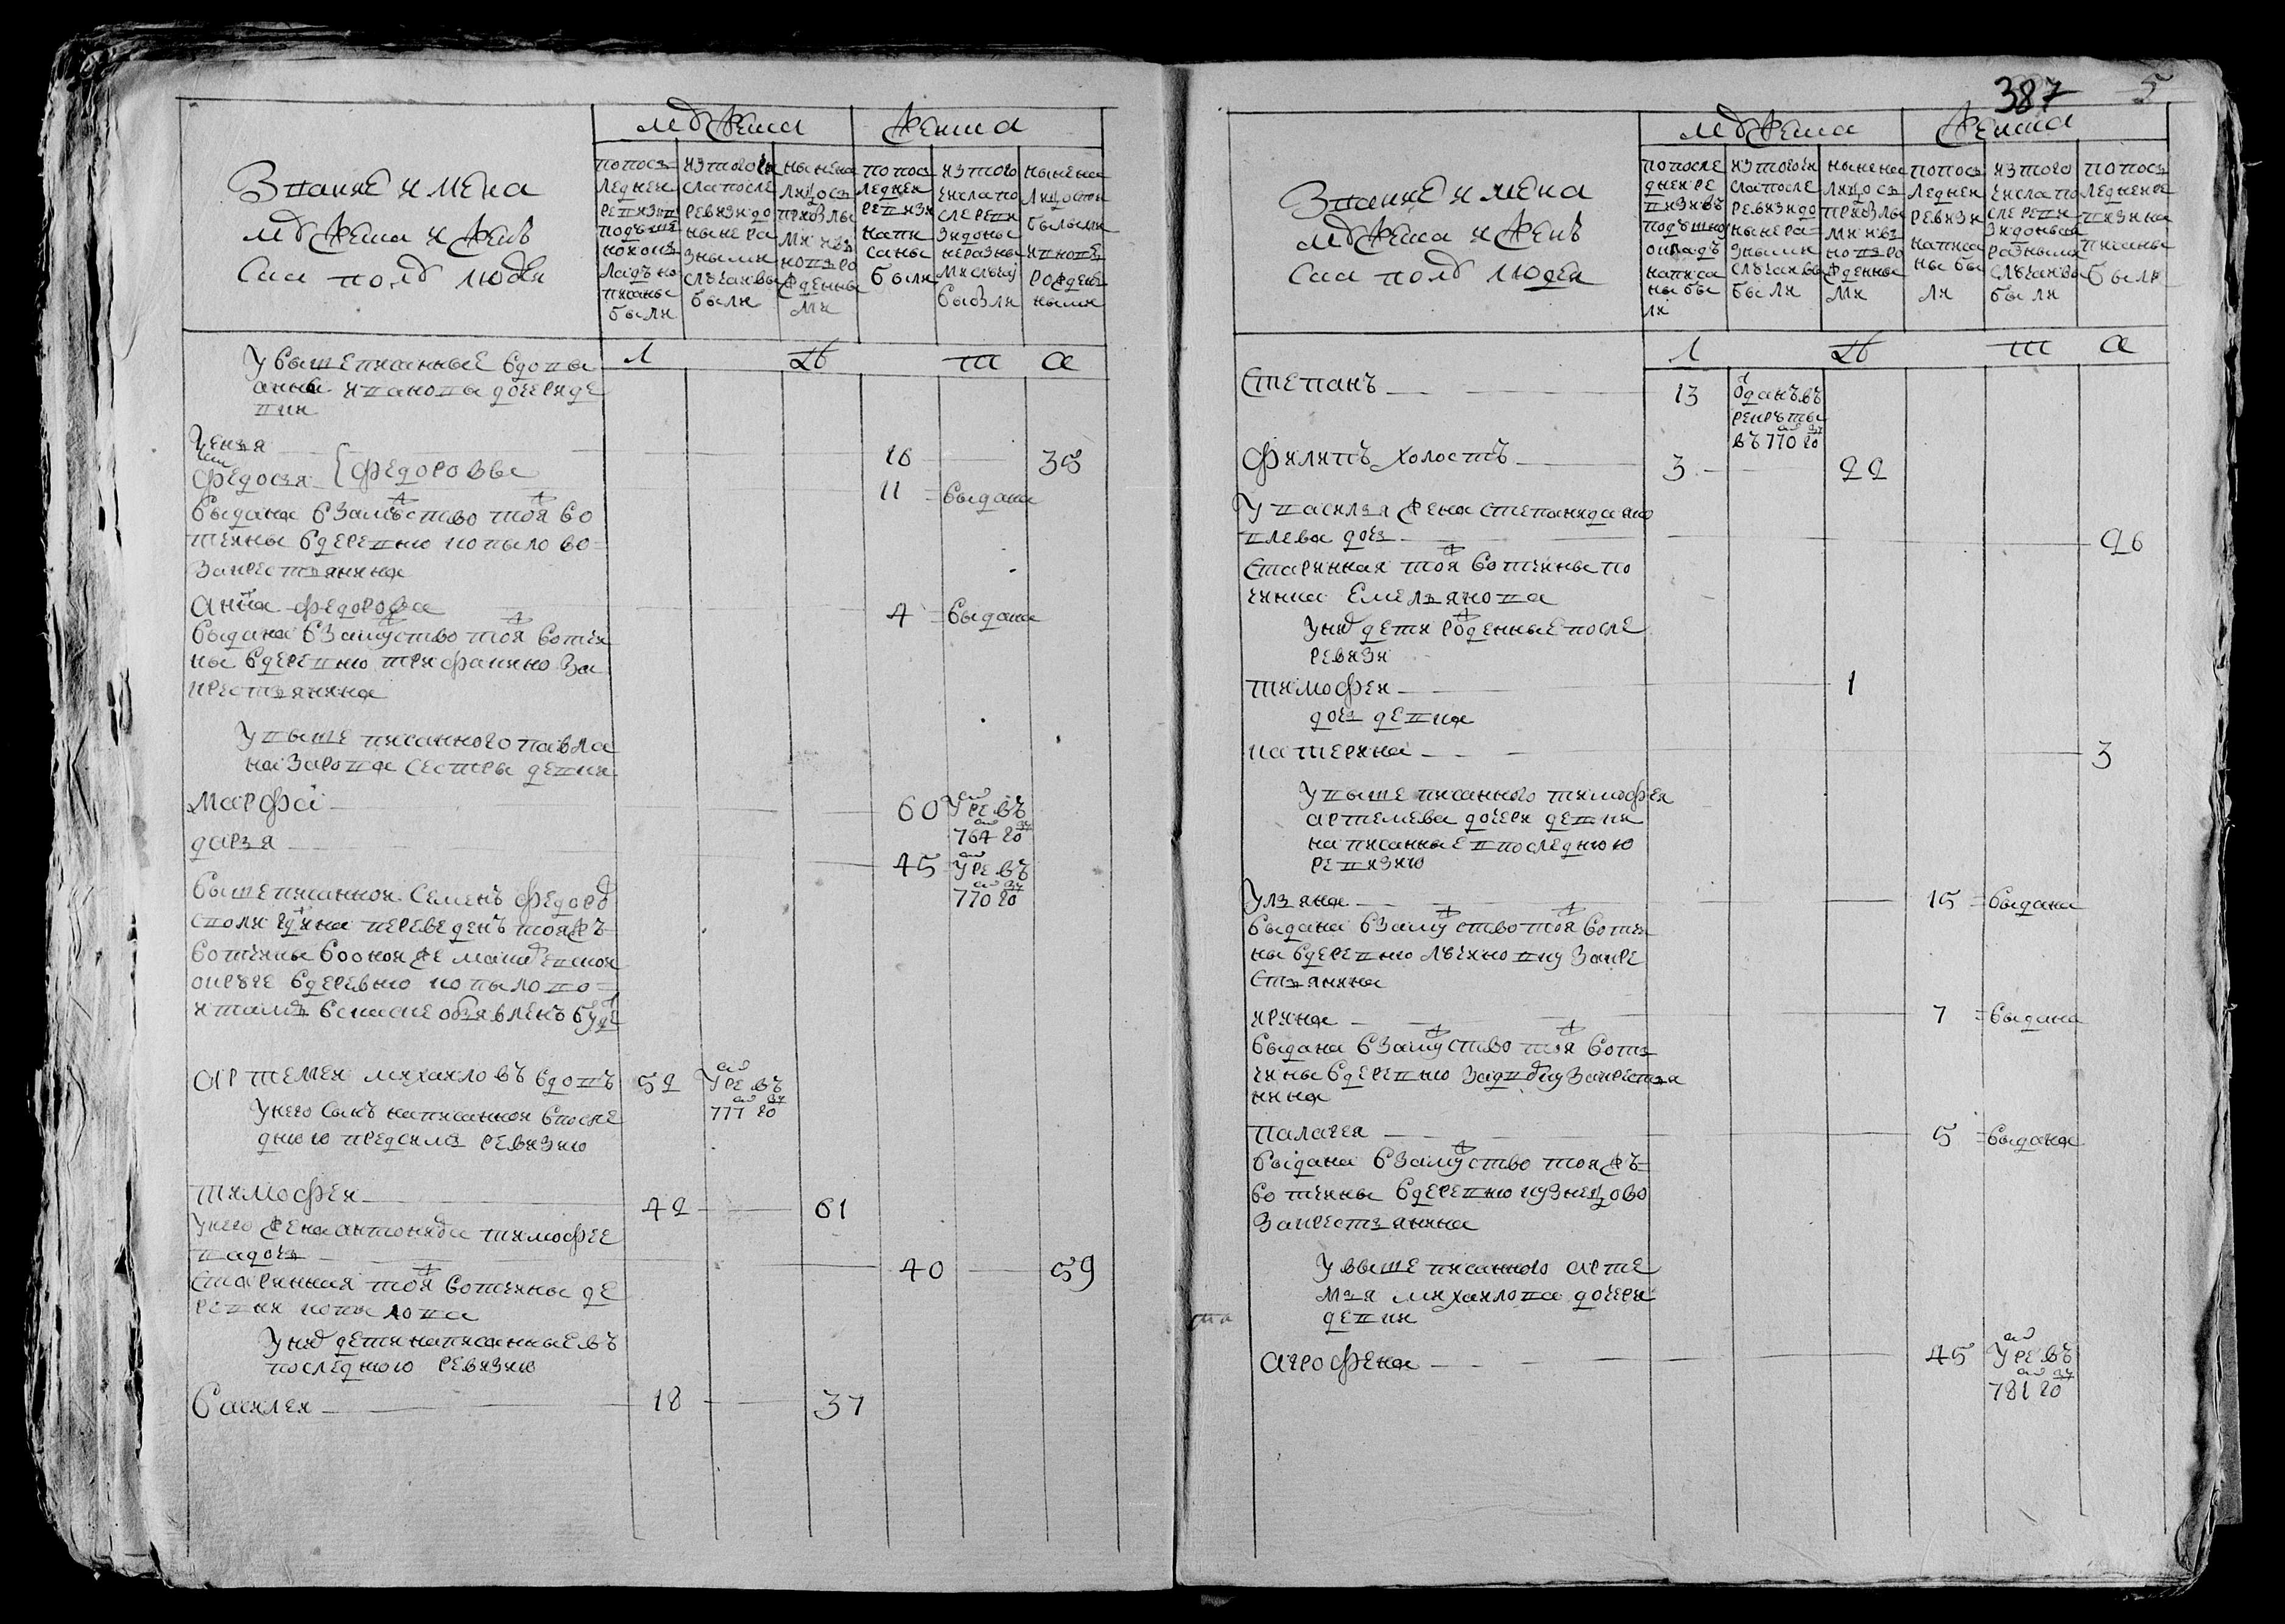 387 5
Звание и мена
мужеска и женъ
ска полу людеи
мужеска
женска
попось
леднеи
ревизии
подуш
ного ок
ладу на
писаны
были
из того чи
сла после
ревизи до
ныне ра
зными
случаи вы
были
ныне на
лицо съ
прибылы
ми и вь
нов ро
жденны
ми
попось
леднеи
ревизи
напи
саны
были
из того
числа по
сле реви
зи доны
не разны
ми случаи
выбыли
ныне на
лицо сои
былыми
и вновь
рожден
ными
лѣта
У вышеписанные вдовы
анны иванова дочери де
вки
Фекла
Федосья { Федоровы
10
35
11 выдана
выдана взамужство тоя во
тчины вдеревню копылово
за крестьянина
анна федорова
4 выдана
выдана взамужство тоя вотчи
ны вдеревню трифакино за
крестьянина
У выше писанного павла
назарова сестры девки
марфа
60 Умре въ
764 году
дарья
45 Умре въ
770 году
вышеписаннои семенъ федоро
споля едина переведенъ тояжъ
вотчины воонои же
округе вдеревню копылово
итамъ вскаске объявленъ буде
артемеи михаиловъ вдовъ 52 Умре въ
777 году
Унего сынъ написаннои впосле
днюю предсимъ ревизию
тимофеи
42
61
Унего жена антонида тимофее
ва дочь
40
59
старинная тоя вотчины де
ревни копылова
У них дети написанные въ
последнюю ревизию
василеи
18
37
Звание и мена
мужеска и женъ
ска полу людеи
мужеска
женска
попосле
днеи ре
визи въ
подушно
окладъ
написа
ны бы
ли
из того чи
сла после
ревизи до
ныне ра
зными
случаи вы
были
ныне на
лицо съ
прибылы
ми и вь
нов ро
жденны
ми
попось
леднеи
ревизи
написа
ны бы
ли
из того
числа по
сле реви
зи доныне
разными
случаи вы
были
попось
леднеи ре
визи на
писаны
были
лѣта
степанъ
13 Отданъ въ
рекруты
въ 770 году
филипъ холостъ
3
22
У василья жена степанида яко
влева дочь
26
старинная тоя вотчины по
чинка емельянова
У них дети рожденные после
ревизи
тимофеи
1
дочь девка
катерина
3
У выше писанного тимофея
артемева дочери девки
написанные впоследнюю
ревизию
Ульяна
15 выдана
выдана взамужство тоя вотчи
ны вдеревню лучковку за кре
стьянина
ирина
7 выдана
выдана взамужство тоя вотъ
чины вдеревню за крестья
нина
палагея
5 выдана
выдана взамужство тояжъ
вотчины вдеревню кузнецово
за крестьянина
У выше писанного арте
мья михаилова дочери
девки
агрофена
45 Умре въ
781 году